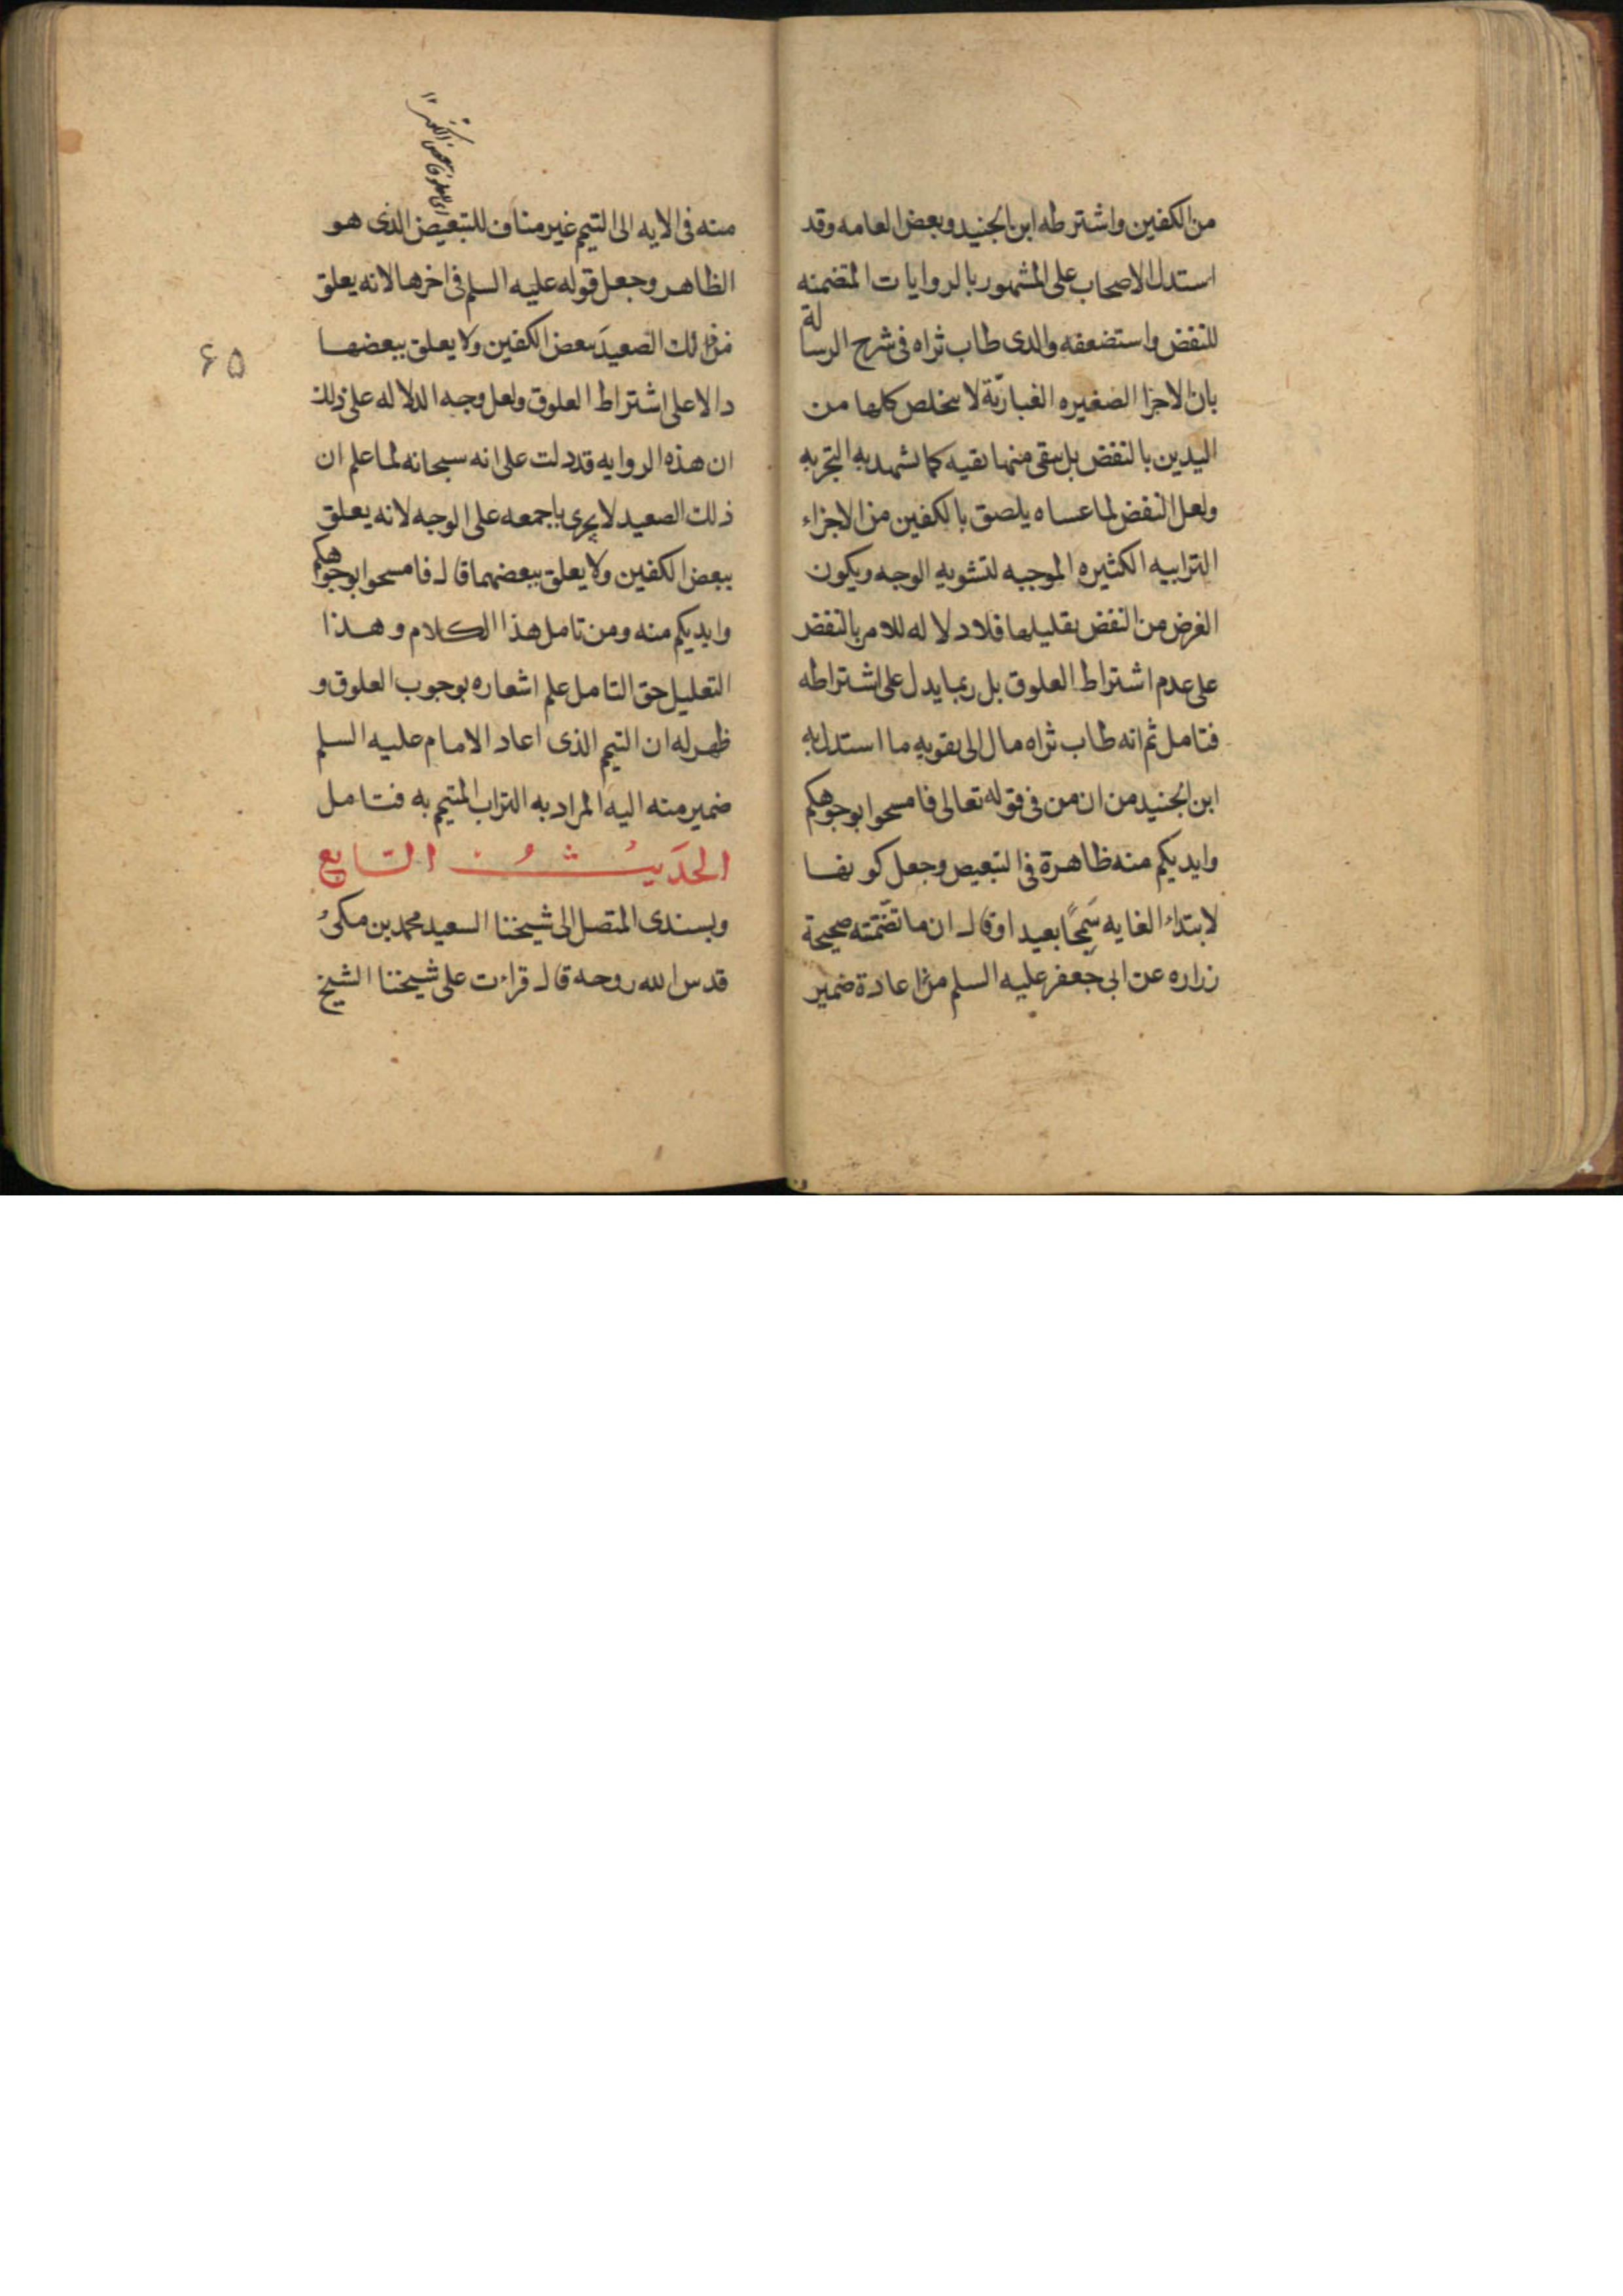 من الكفين واشترطه ابن الجنيد وبعض العامه وقد
استدل الاصحاب على المشهور بالروايات المتضمنه
للنفض واستضعفه والدى طاب ثراه فى شرح الرسالة
بان الاجزا الصغيره الغباريّة لا يتخلص كلها من
اليدين بالنفض بل يبقى منها بقيه كما تشهد به التجربه
ولعل النفض لما عساه يلصق بالكفين من الاجزاء
الترابيه الكثيره الموجبه لتشويه الوجه ويكون
الغرض من النفض تقليلها فلا دلاله للامر بالنفض
على عدم اشتراط العلوق بل ربما يدل على اشتراطه
فتامل ثم انه طاب ثراه مال الى تقويه ما استدل به
ابن الجنيد من ان من فى قوله تعالى فامسحوا بوجوهكم
وايديكم منه ظاهرة فى التبعيض وجعل كونها
لابتداء الغايه بعيدا وقال ان ما تضمنته صحيحة
زراره عن ابى جعفر عليه السلم من اعادة ضمير
منه فى الايه الى التيمم غير مناف للتبعيض الذى هو
الظاهر وجعل قوله عليه السلم فى اخرها لانه يعلق
من ذلك الصعيد ببعض الكفين ولا يعلق ببعضها
دالا على اشتراط العلوق ولعل وجه الدلاله على ذلك
ان هذه الروايه قد دلت على انه سبحانه لما علم ان
ذلك الصعيد لا يجرى باجمعه على الوجه لانه يعلق
ببعض الكفين ولا يعلق ببعضهما قال فامسحوا بوجوهكم
وايديكم منه ومن تامل هذا الكلام وهذا
التعليل حق التامل علم اشعاره بوجوب العلوق و
ظهر له ان التيمم الذى اعاد الامام عليه السلم
ضمير منه اليه المراد به التراب المتيمم به فتامل
الحديث السابع
وبسندى المتصل الى شيخنا السعيد محمد بن مكى
قدس الله روحه قال قراءت على شيخنا الشيخ
۶۵